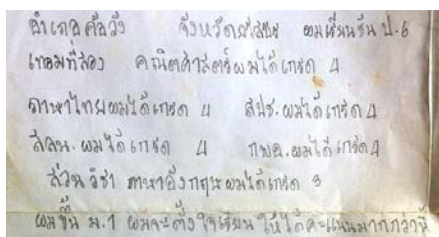 อำเภอ ศิลาวัง จังหวัดศรีสะเกษ ผมเรียนชั้น ป.6
เทอมที่สอง คณิตศาสตร์ผมได้เกรด 4
ภาษาไทยผมได้เกรด 4 สปช. ผมได้เกรด 4
สลน. ผมได้เกรด 4 กพอ. ผมได้เกรด 4
ส่วน วิชา ภาษาอังกฤษผมได้เกรด 3
ผมขึ้น ม.1 ผมจะตั้งใจเรียน ให้ได้คะแนนมากกว่านี้